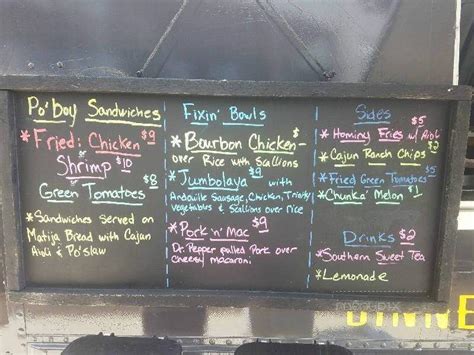 Po' Boy Sandwiches
*Fried: Chicken $9
or
Shrimp $10
or
Green Tomatoes $8
*Sandwiches Served on
Matija Bread with Cajun
Aioli & Po'slaw
Fixin' Bowls
*Bourbon Chicken - $
over Rice with Scallions
*Jumbolaya $9 with
Andouille Sausage, Chicken, Trinity
vegetables & Scallions over rice
*Pork 'n' Mac $9
Dr. Pepper pulled Pork over
cheesy macaroni
Sides
*Hominy Fries w/ Aioli $5
*Cajun Ranch Chips $2
*Fried Green Tomatoes $5
*Chunka' Melon $1
Drinks $2
*Southern Sweet Tea
*Lemonade